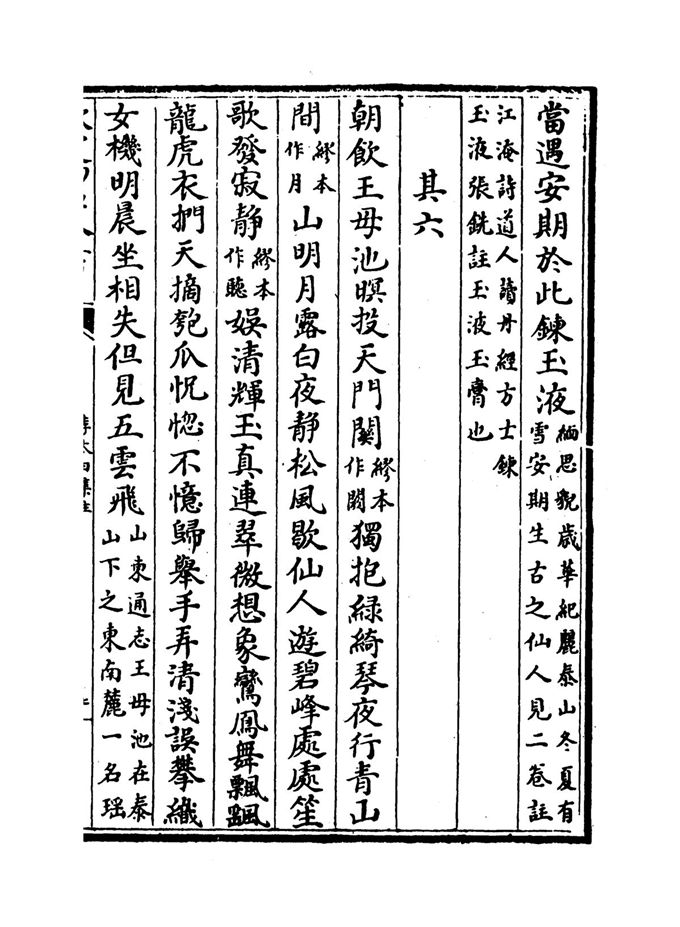 當遇安期於此鍊玉液緬思貌歳華紀麗泰山冬夏有
雪安期生古之仙人見二卷註
江淹詩道人讀丹經方士鍊
玉液張銑註玉液玉膏也
其六
朝飲王母池暝投天門關繆本
作闕獨抱緑綺琴夜行青山
間繆本
作月山明月露白夜静松風歇仙人遊碧峰處處笙
歌發寂静繆本
作聴娯清輝玉真連翠微想象鸞鳳舞飄颻
龍虎衣捫天摘匏瓜怳惚不憶歸舉手弄清淺誤攀織
女機明晨坐相失但見五雲飛山東通志王母池在泰
山下之東南麓一名瑶
李太白集注